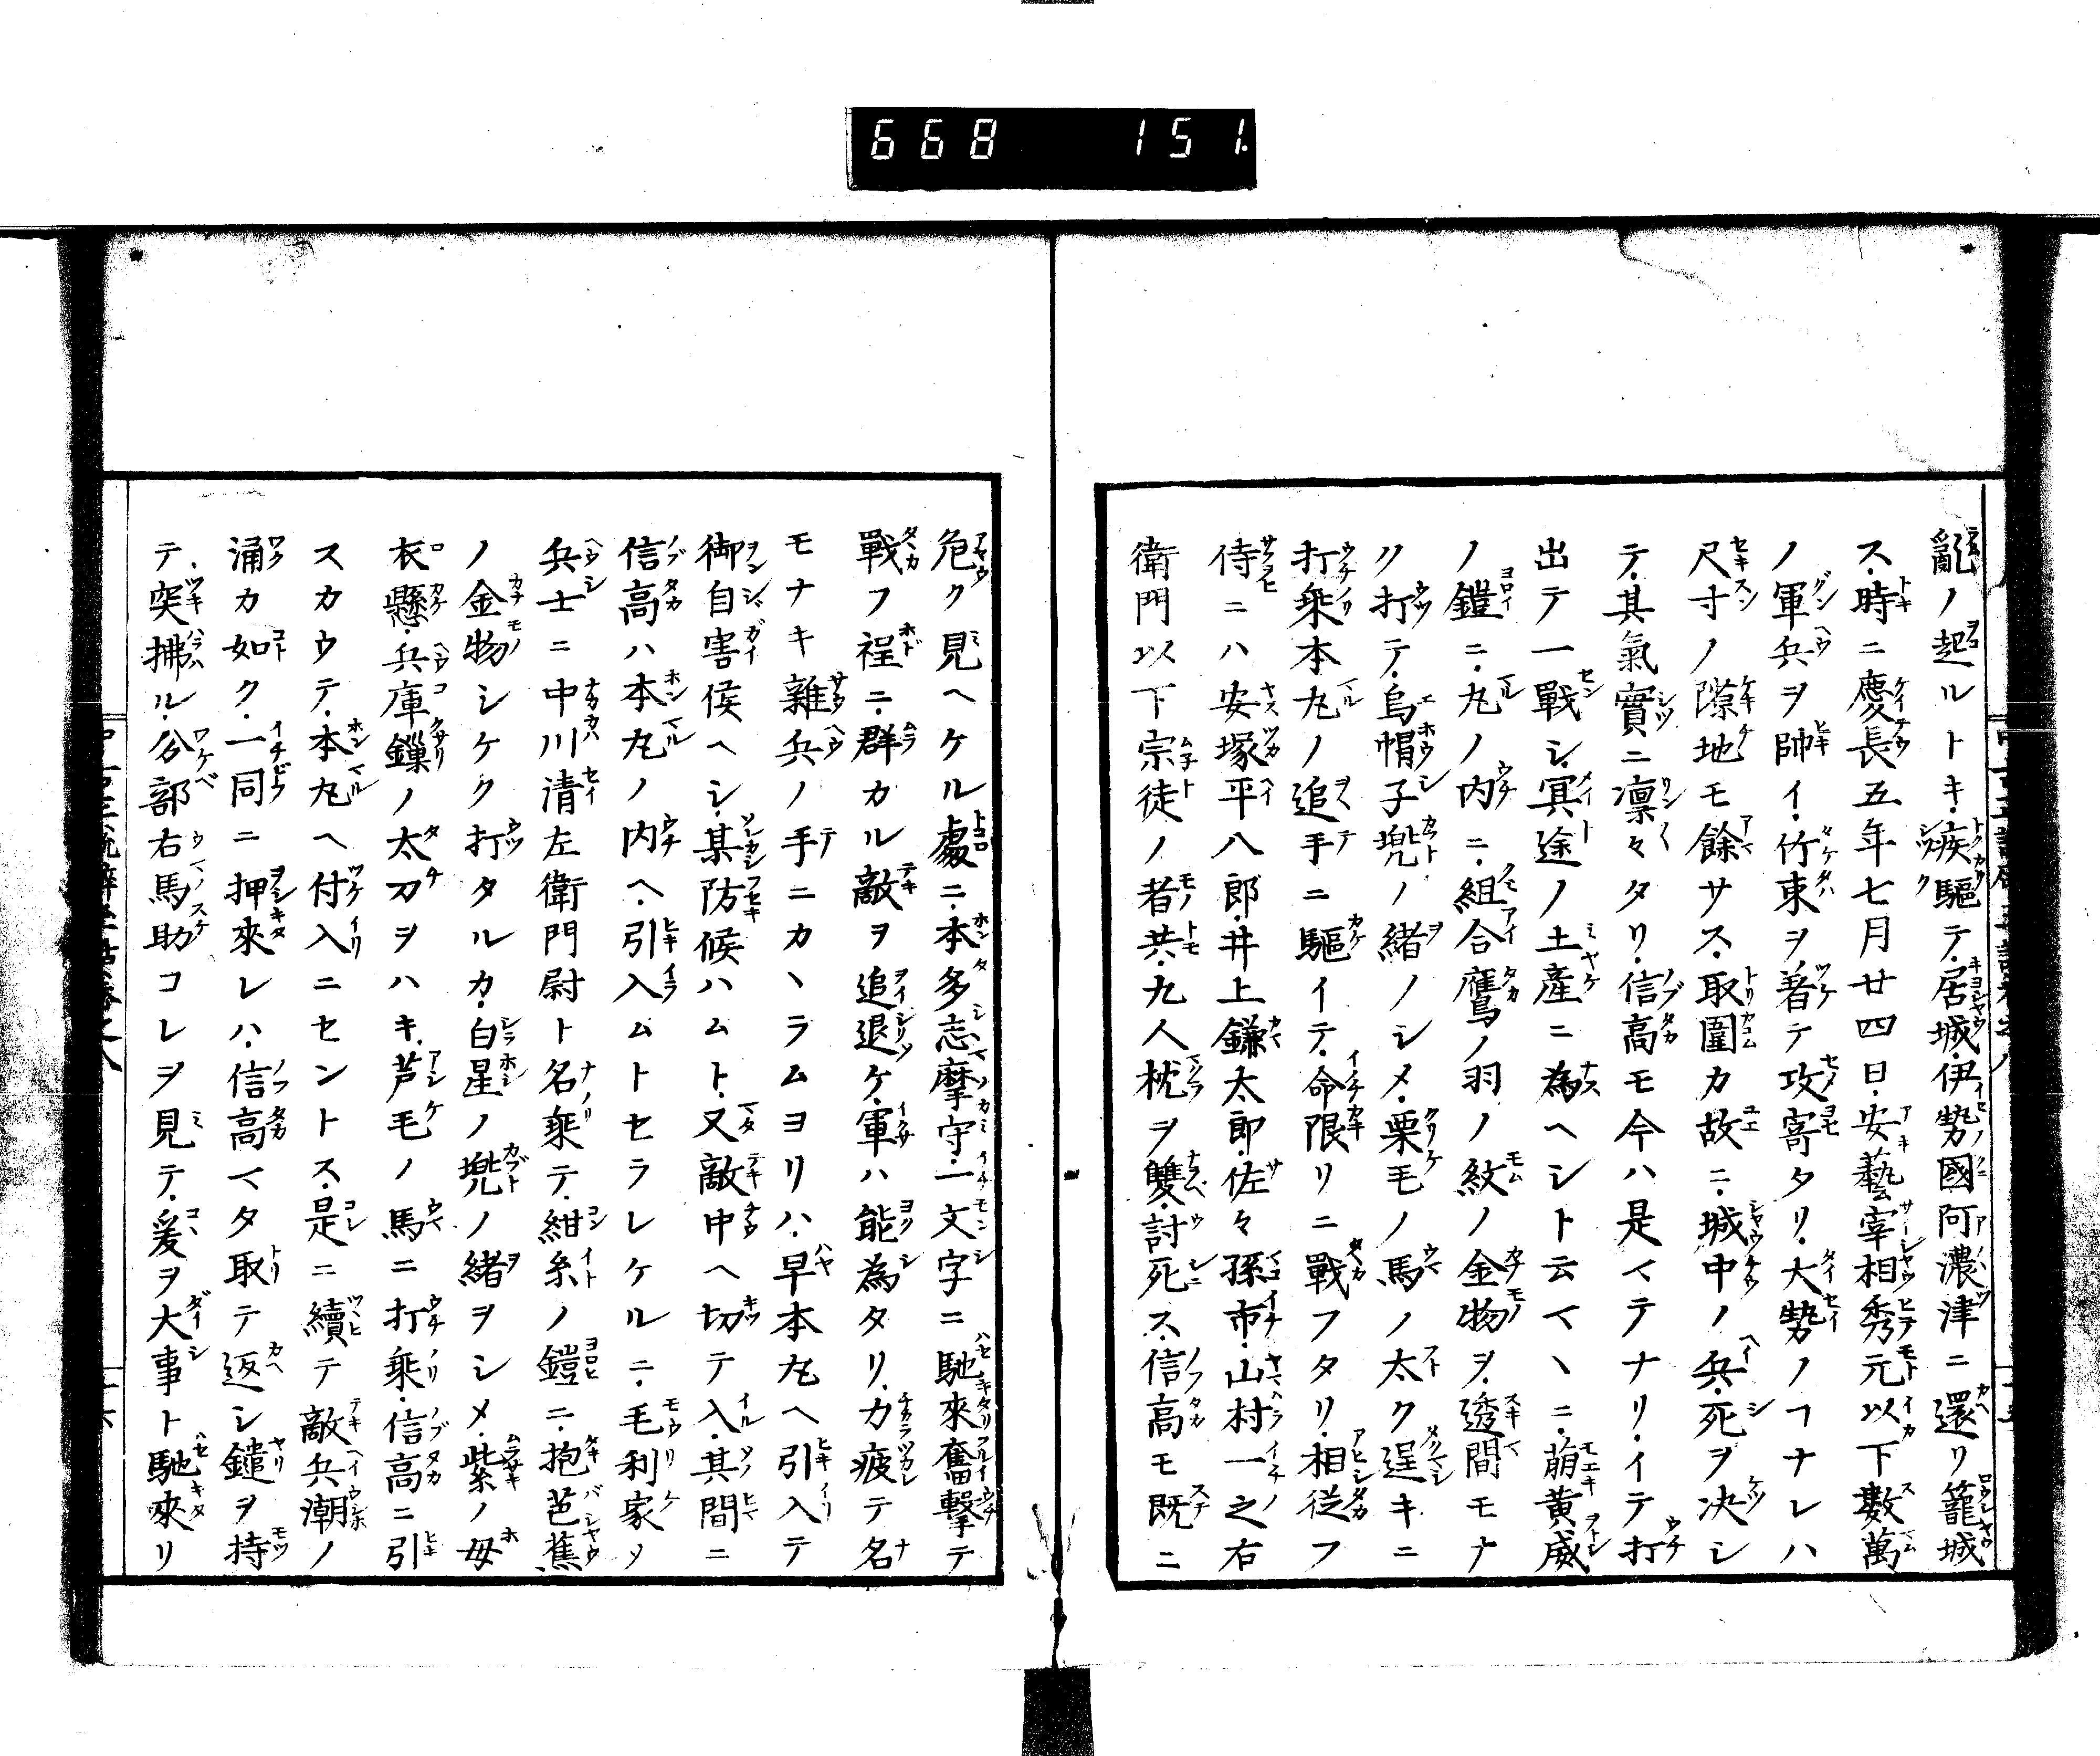 668 151
亂ノ起ルトキ疾驅テ居城伊勢國阿濃津ニ還リ籠城
ス時ニ慶長五年七月廿四日安藝宰相秀元以下數萬
ノ軍兵ヲ帥イ竹束ヲ著テ攻寄タリ大勢ノコナレハ
尺寸ノ隙地モ餘サス取圍カ故ニ城中ノ兵死ヲ决シ
テ其氣實ニ凛々タリ信高モ今ハ是マテナリイテ打
出テ一戰シ冥途ノ土產ニ為ヘシト云マヽニ萌黄威
ノ鎧ニ丸ノ内ニ組合鷹ノ羽ノ紋ノ金物ヲ透間モナ
ク打テ烏帽子兜ノ緒ノシメ栗毛ノ馬ノ太ク逞キニ
打乘本丸ノ追手ニ驅イテ命限リニ戰フタリ相從フ
侍ニハ安塚平八郎井上鎌太郎佐々孫市山村一之右
衛門以下宗徒ノ者共九人枕ヲ雙討死ス信高モ既ニ
危ク見ヘケル處ニ本多志摩守一文字ニ馳來奮擊テ
戰フ程ニ群カル敵ヲ追退ケ軍ハ能為タリ力疲テ名
モナキ雜兵ノ手ニカヽラムヨリハ早本丸ヘ引入テ
御自害候ヘシ某防候ハムト又敵中ヘ切テ入其間ニ
信高ハ本丸ノ内ヘ引入ムトセラレケルニ毛利家ノ
兵士ニ中川清左衛門尉ト名乘テ紺糸ノ鎧ニ抱芭蕉
ノ金物シケク打タルカ白星ノ兜ノ緒ヲシメ紫ノ母
衣懸兵庫鏁ノ太刀ヲハキ芦毛ノ馬ニ打乘信高ニ引
スカウテ本丸ヘ付入ニセントス是ニ續テ敵兵潮ノ
涌カ如ク一同ニ押來レハ信高マタ取テ返シ鑓ヲ持
テ突拂ル分部右馬助コレヲ見テ爰ヲ大事ト馳來リ